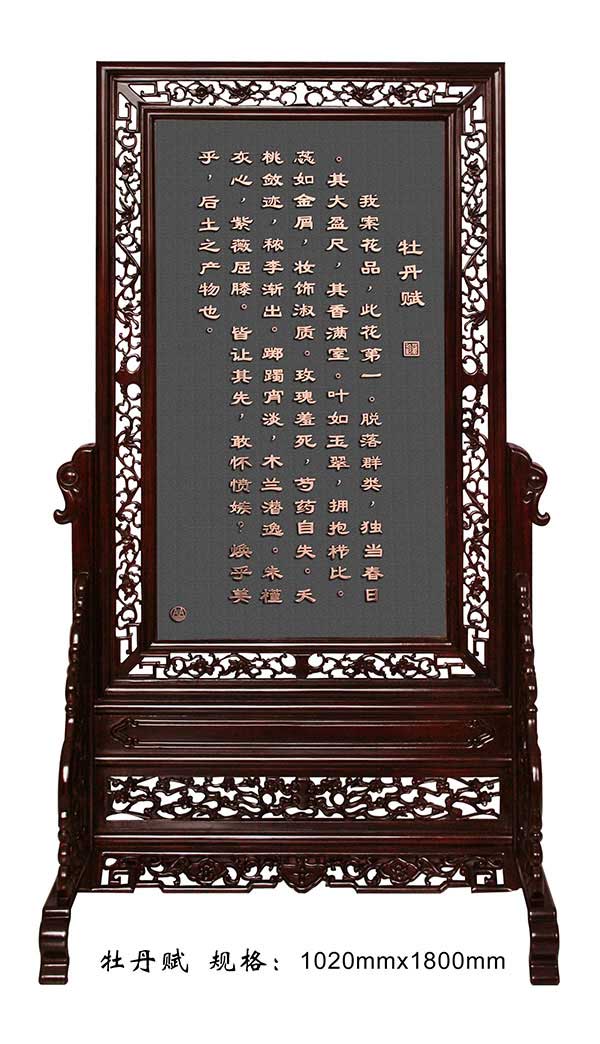 牡丹赋
我案花品，此花第一。脱落群类，独当春日
。其大盈尺，其香满室。叶如玉翠，拥抱栉比。
蕊如金屑，妆饰淑质。玫瑰羞死，芍药自失。夭
桃敛迹，秾李渐出。踯躅宵淡，木兰潜逸。朱槿
灰心，紫薇屈膝。皆让其先，敢怀愤嫉？焕乎美
乎，后土之产物也。
牡丹赋 规格：1020mmx1800mm